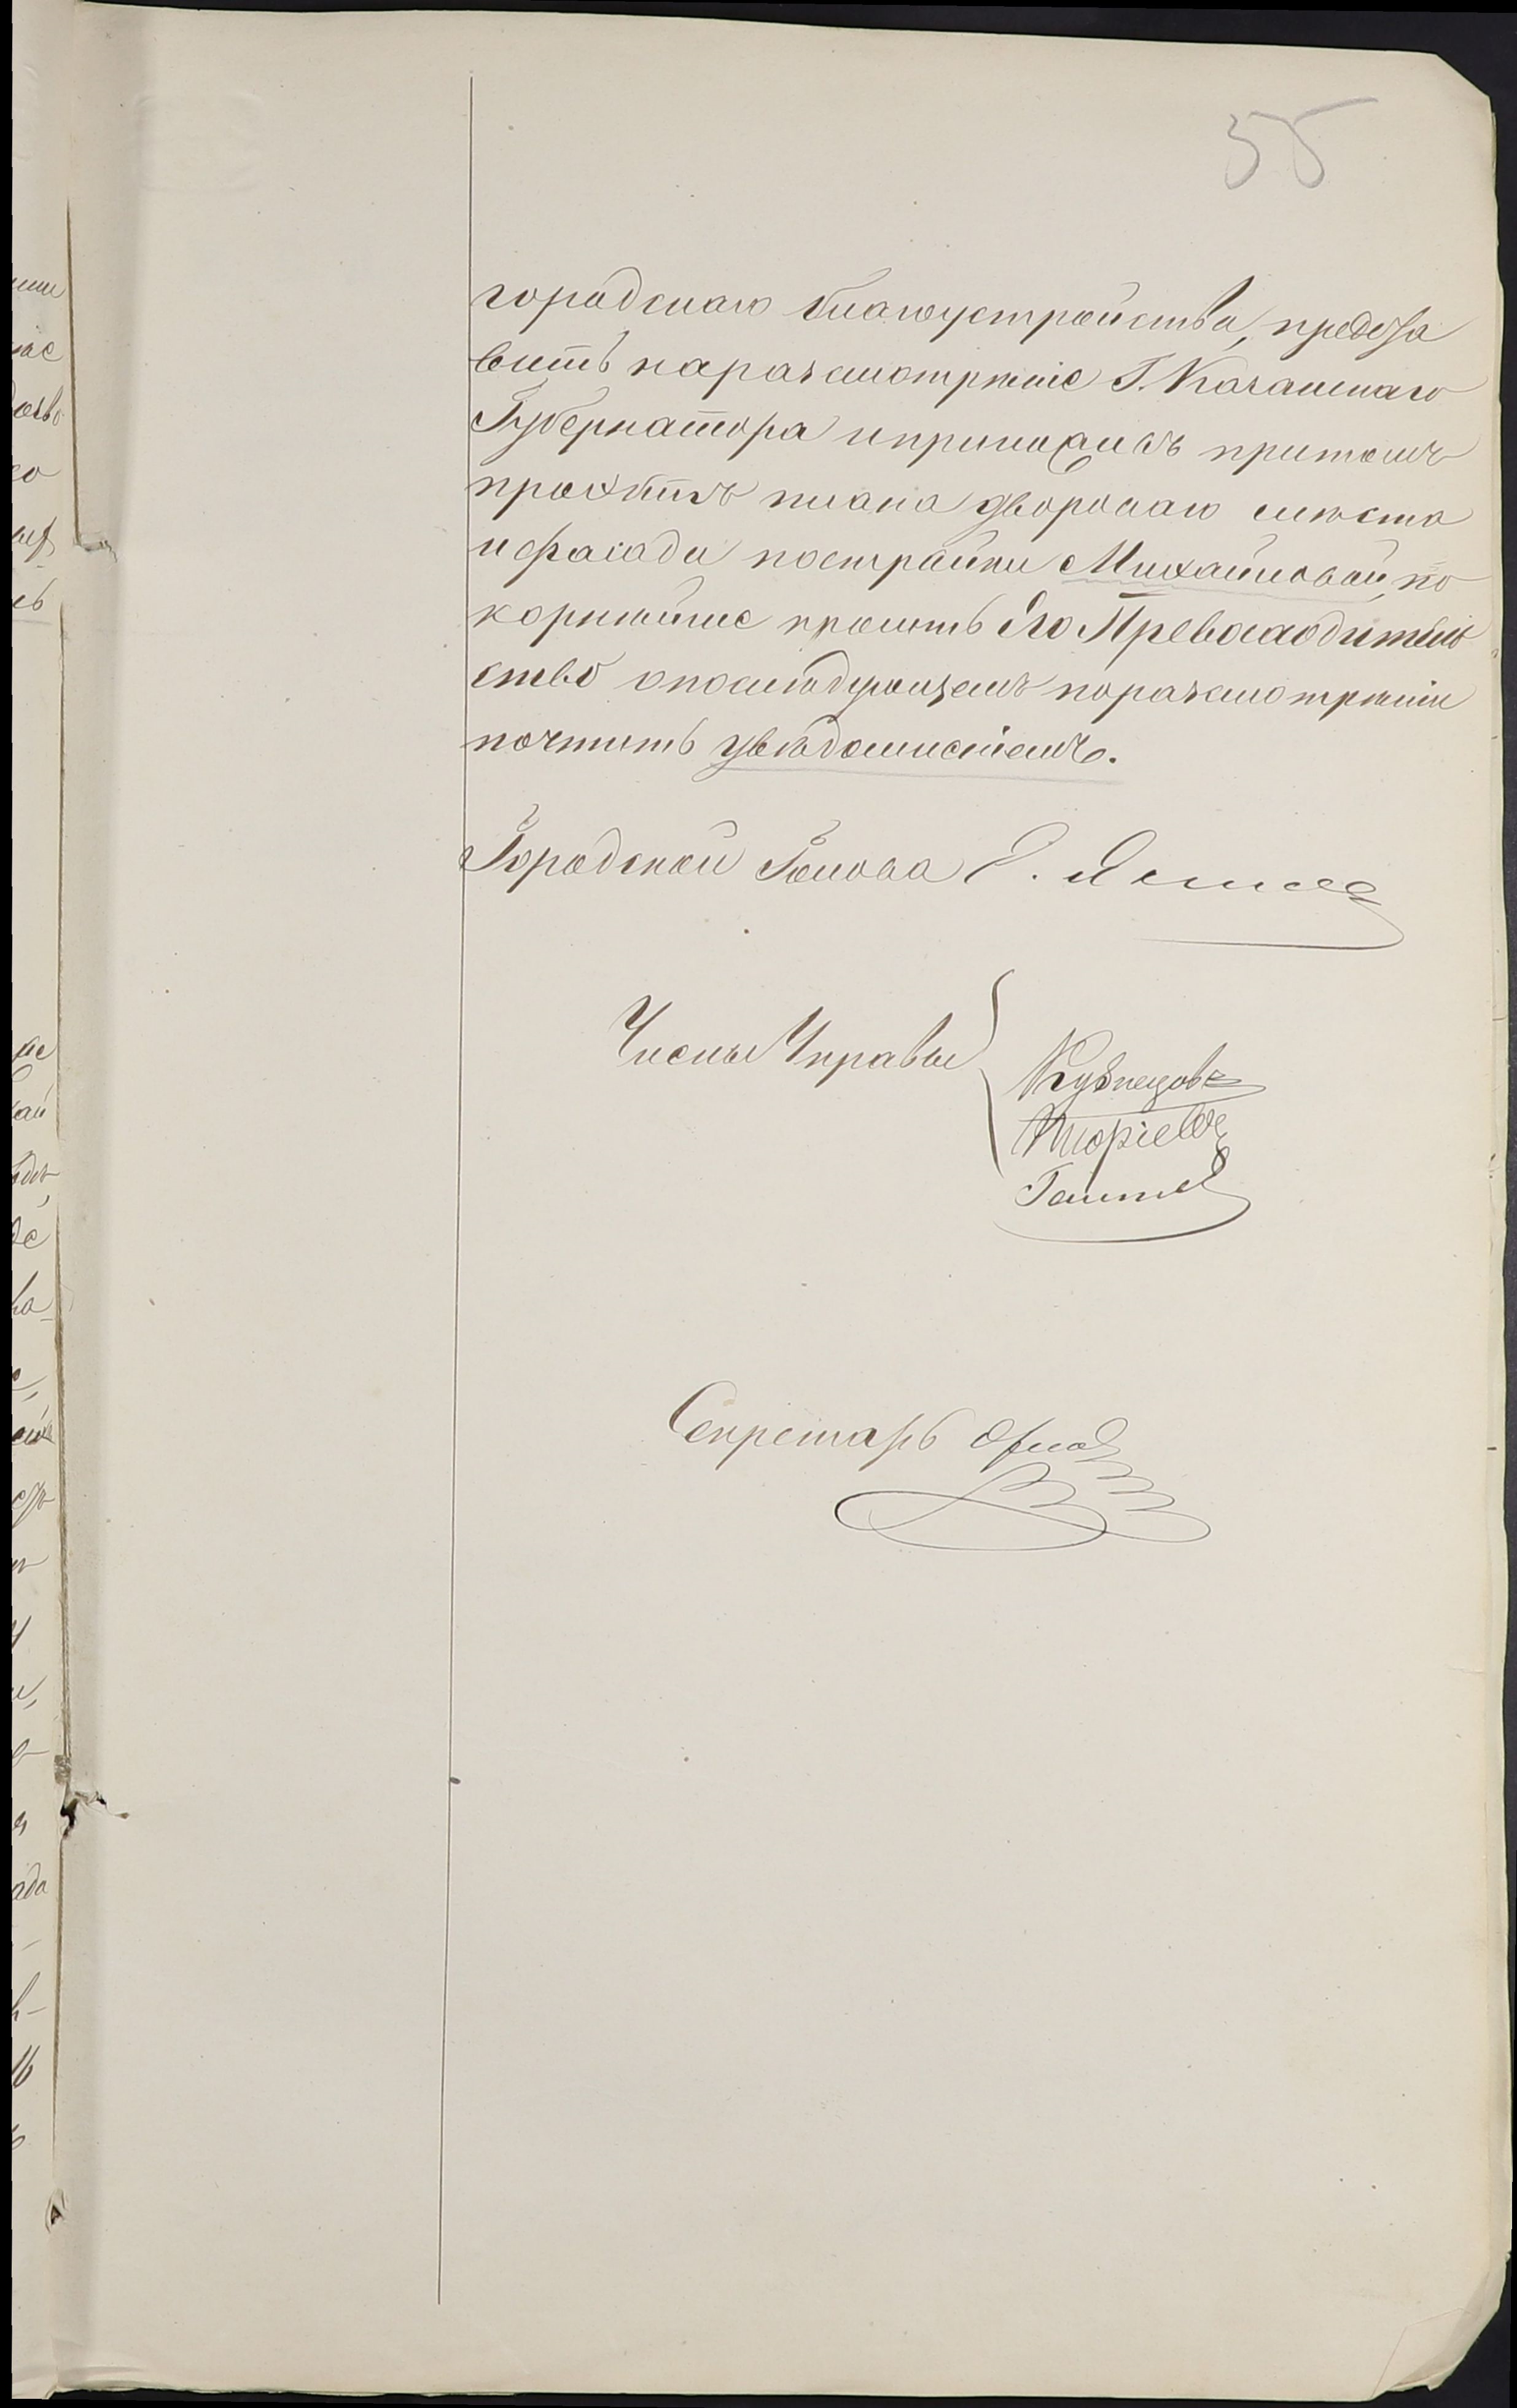 55
городскаго благоустройства, предста
вить на разсмотрѣніе Г. Казанскаго
Губернатора и приложивъ при томъ
проэктъ плана двороваго мѣста
и фасада постройки Михайловой, по
корнѣйше просить Его Превосходитель
ство о послѣдующемъ по разсмотрѣніи
почтить увѣдомленіемъ.
Городской Голова
Члены Управы
Кузнецовъ
Секретарь